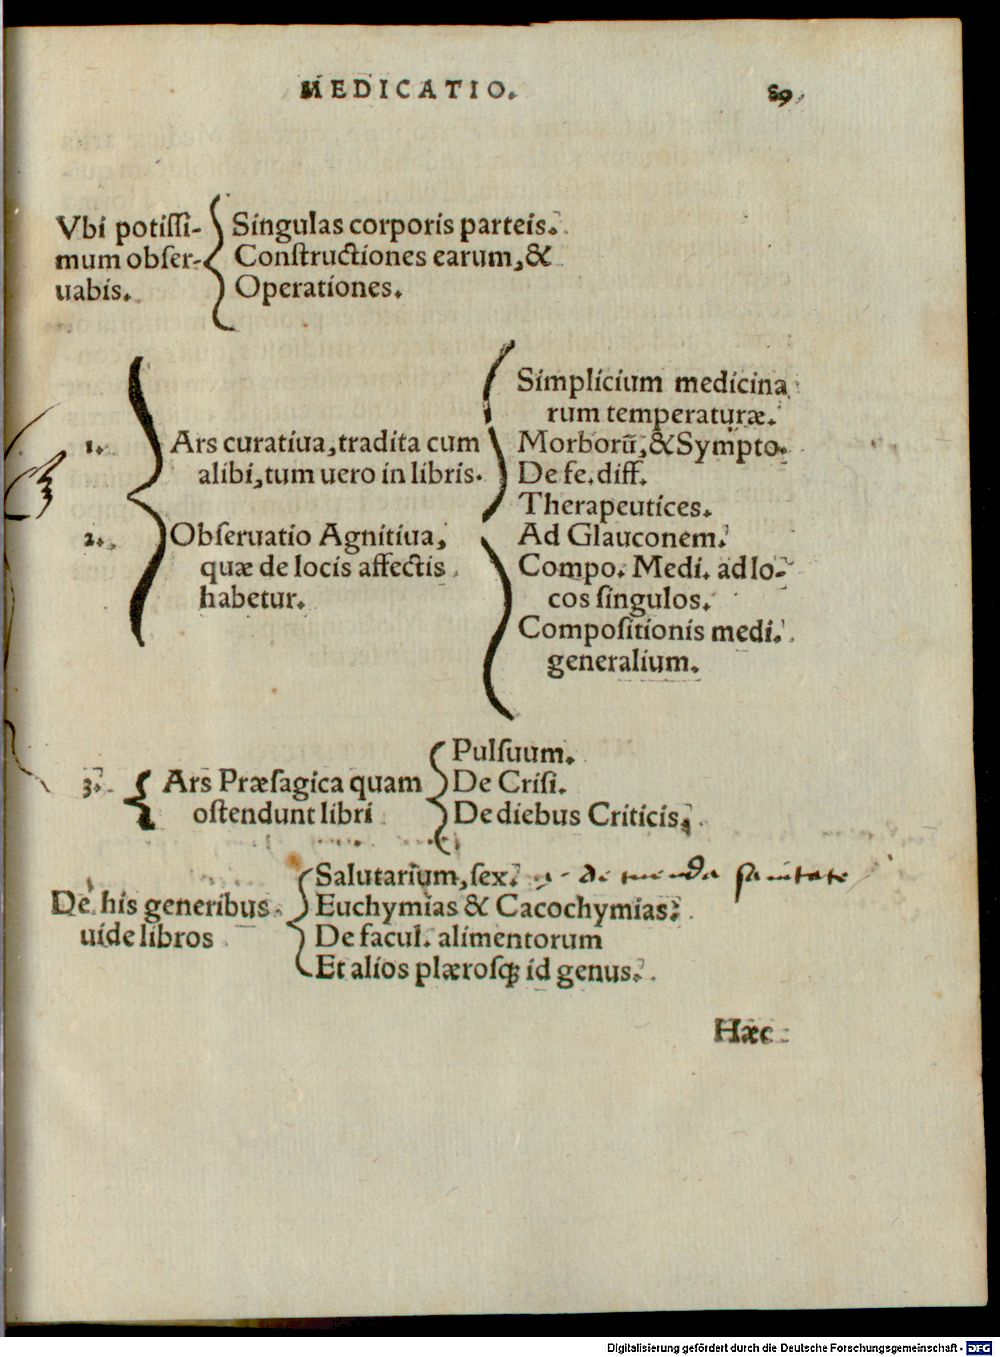 MEDICATIO. 89
Vbi potiſſi-
mum obſer-
uabis.
Singulas corporis parteis.
Conſtructiones earum, &
Operationes.
1. Ars curatiua, tradita cum
alibi, tum uero in libris.
2. Obſeruatio Agnitiua,
quæ de locis affectis
habetur.
Simplicium medicina
rum temperaturæ.
Morborũ, & Sympto.
De fe. diff.
Therapeutices.
Ad Glauconem.
Compo. Medi. ad lo-
cos ſingulos.
Compoſitionis medi.
generalium.
3. Ars Præſagica quam
oſtendunt libri
Pulſuum.
De Criſi.
De diebus Criticis,
De his generibus
uide libros
Salutarium, ſex. de tuenda sanitate
Euchymias & Cacochymias.
De facul. alimentorum
Et alios plæroſq; id genus.
Hæc
Digitalisierung gefördert durch die Deutsche Forschungsgemeinschaft - DFG